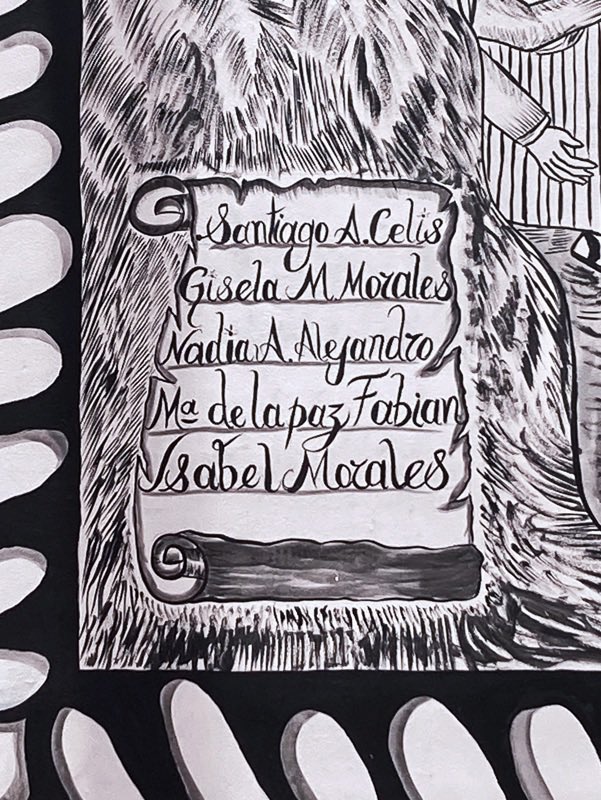 Santiago A. Celis
Gisela M. Morales
Nadia A. Alejandro
Mª de la paz Fabian
Isabel Morales